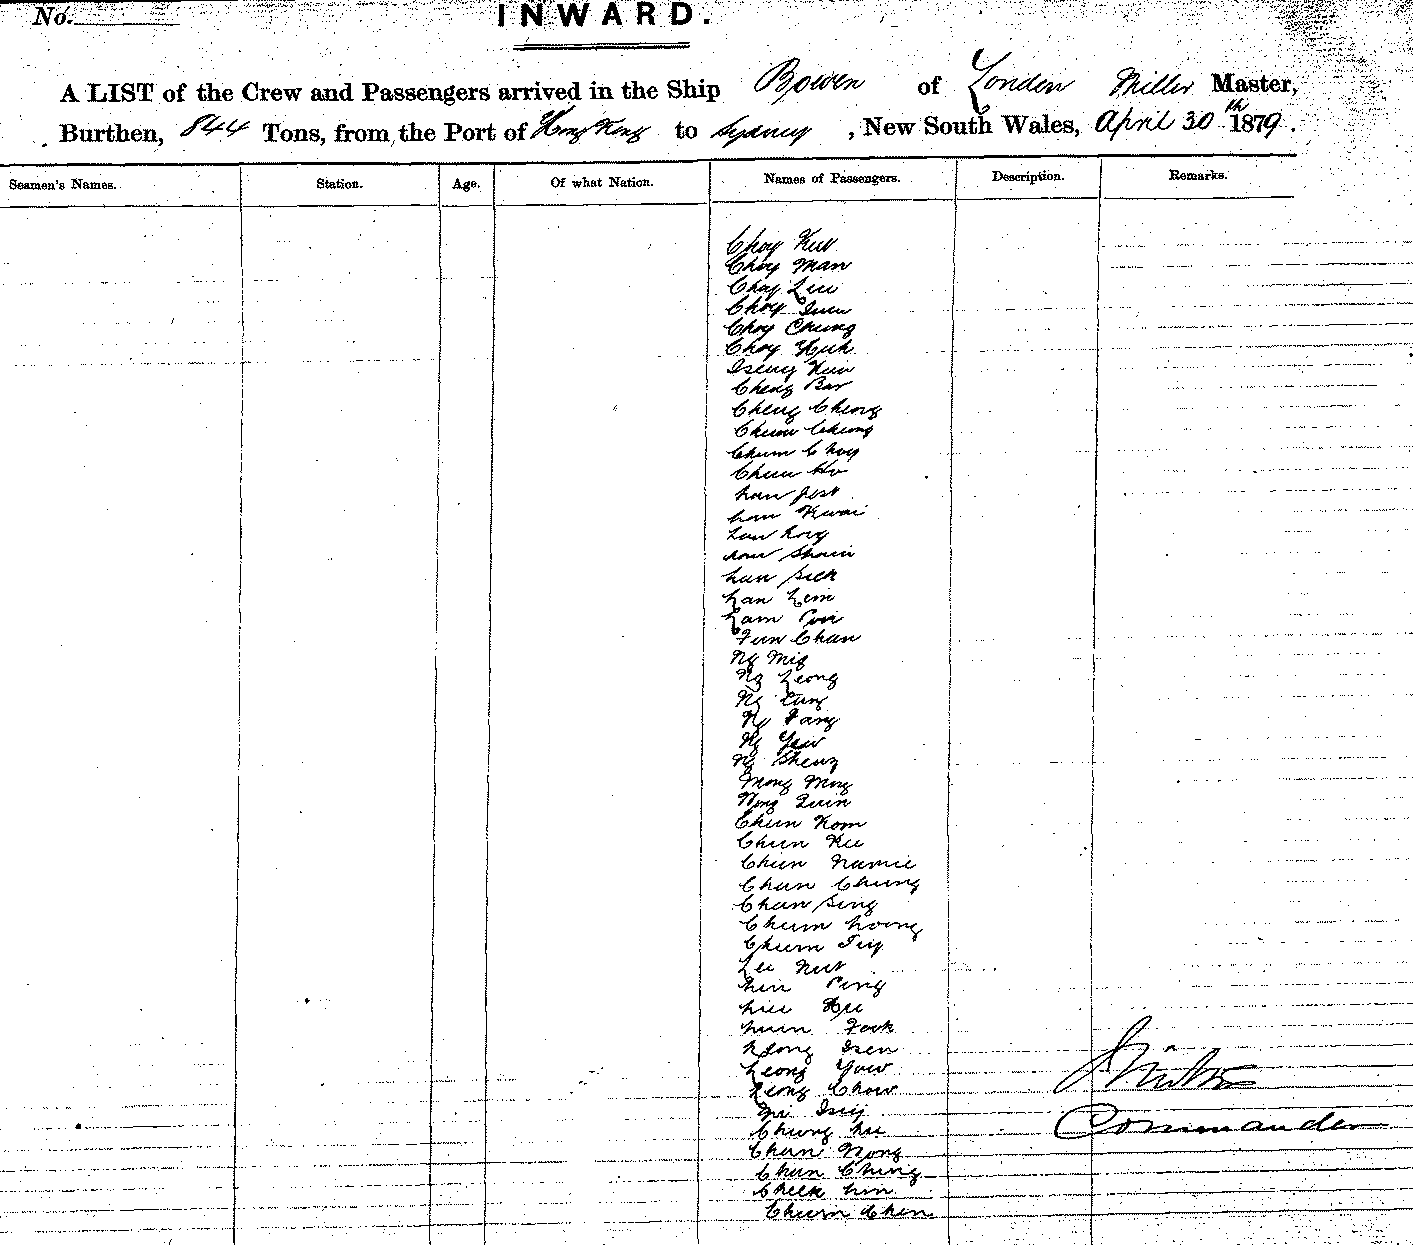 No.
INWARD.
A LIST of the Crew and Passengers arrived in the Ship Bowen of London Miller Master,
Burthen, 844 Tons, from the Port of Hong Kong to Sydney, New South Wales, April 30th 1879.
Seamen's Names. Station. Age. Of what Nation. Names of Passengers. Description. Remarks.
Choy Kut
Choy Man
Choy Luu
Choy
Choy Chung
Choy Huk
Tseung
Cheng Bar
Cheng Cheong
Chum Cheong
Chum Choy
Chun Ho
Lan
Lan Kwai
Lan Long
Lau
Lan Sick
Lan Lem
Lam Poi
Fun Chan
Ng Mig
Ng Leong
Ng Lung
Ng Fang
Ng Yew
Ng Sheung
Mong Mong
Wong
Chun Kom
Chun Ku
Chun Namie
Chun Chung
Chun Sing
Chum Loong
Chum
Lee
Ping
Fook
Leong
Leong Yow
Leong Chow
Cheung
Chun Wong
Chun Ching
Cheek Lin
Chum Chen
Commander